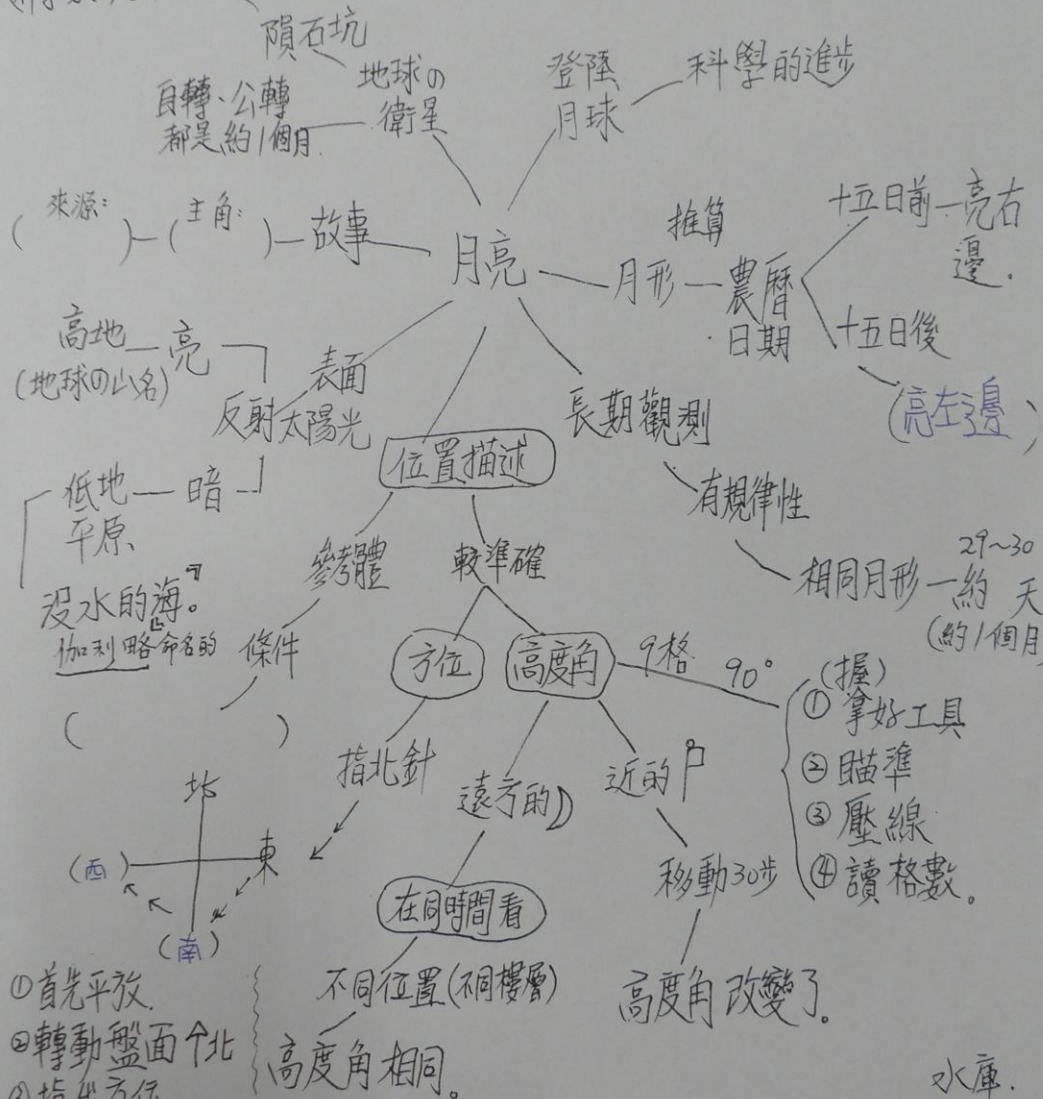 隕石坑
地球の
衛星
自轉、公轉
都是約1個月
登陸
月球
科學的進步
來源:
( )
主角:
( )
故事
月亮
月形
推算
農曆
日期
十五日前
亮右
邊。
十五日後
(亮左邊)
高地
(地球の山名)
亮
表面
反射太陽光
低地
平原
暗
沒水的「海」。
伽利略命名的
位置描述
長期觀測
有規律性
相同月形
約29~30天
(約1個月
參考體
條件
( )
較準確
方位
高度角
9格
90°
(握)
①拿好工具
②瞄準
③壓線
④讀格數。
指北針
遠方的
近的
移動30步
高度角改變了。
北
東
(西)
(南)
在同時間看
不同位置(不同樓層)
高度角相同。
①首先平放
②轉動盤面↑北
水庫.